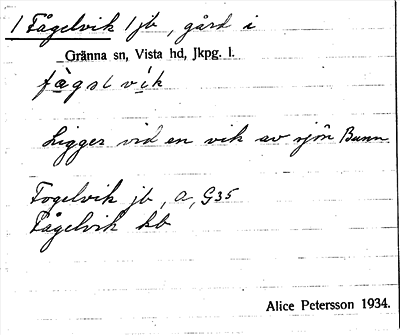 1 Fågelvik 1 jb, gård i
Gränna sn, Vista hd, Jkpg. l.
Ligger vid en vik av sjön Bunn.
Fogelvik jb, a, G35
Fågelvik kb
Alice Petersson 1934.